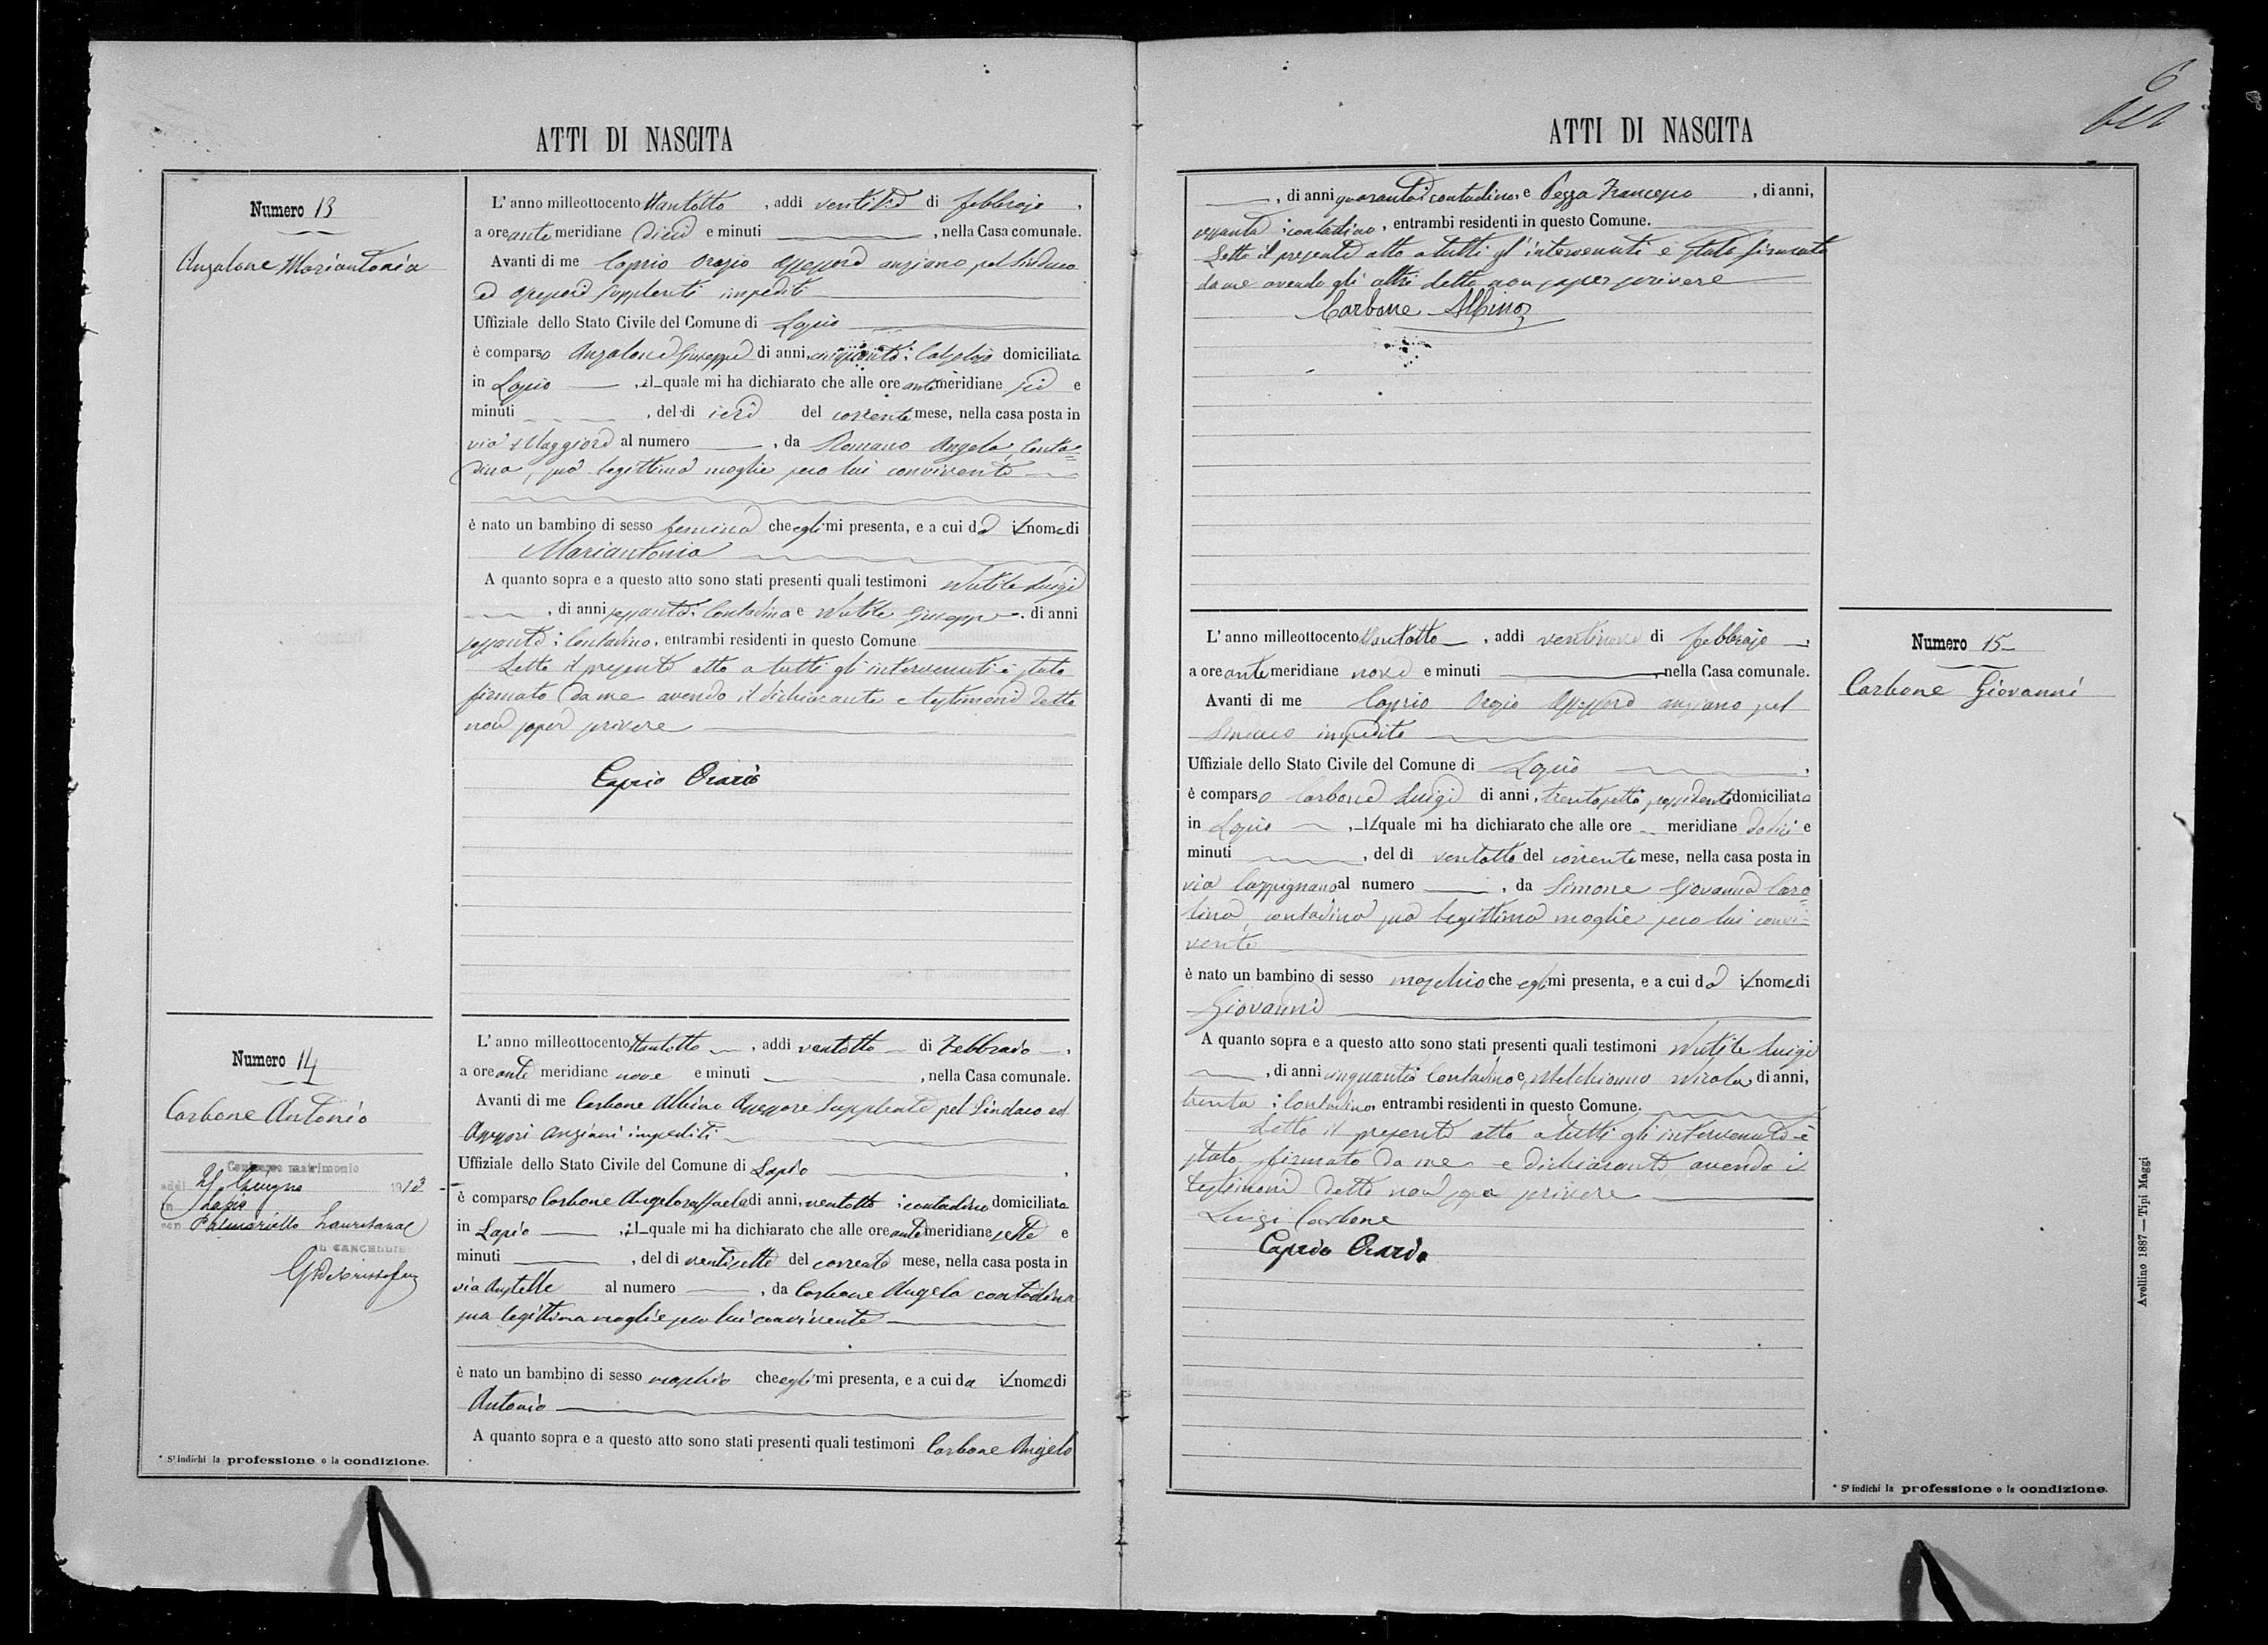 ATTI DI NASCITA
Numero 13
Anzalone Mariantonia
L'anno milleottocento ttantotto, addì ventisei di febbrajo,
a ore ante meridiane dieci e minuti, nella Casa comunale.
Avanti di me Caprio Orazio Assessore anziano pel Sindaco
ed Assessori supplenti impediti
Uffiziale dello Stato Civile del Comune di Lapio
è comparso Anzalone Giuseppe di anni, cinquanta: domiciliato
in Lapio, il quale mi ha dichiarato che alle ore antemeridiane sei e
minuti, del dì ieri del corrente mese, nella casa posta in
via Maggiore al numero, da Romano Angela, conta=
dina, sua legittima moglie seco lui convivente
è nato un bambino di sesso femina che egli mi presenta, e a cui dà il nome di
Mariantonia
A quanto sopra e a questo atto sono stati presenti quali testimoni Nutile Luigi
, di anni sessanta: Contadino e Nutile Giuseppe, di anni
sessanta: Contadino, entrambi residenti in questo Comune
Letto il presente atto a tutti gli intervenuti è stato
firmato da me avendo il dichiarante e testimoni detto
non saper scrivere
Caprio Orazio
Numero 14
Carbone Antonio
Contrasse matrimonio
addì Giugno 1913
in Lapio
con Palmariello
IL CANCELLIE
L'anno milleottocento ttantotto, addì ventotto di Febbraio,
a ore ante meridiane nove e minuti, nella Casa comunale.
Avanti di me Carbone Albino Assessore Supplente pel Sindaco ed
Assessori anziani impediti
Uffiziale dello Stato Civile del Comune di Lapio,
è comparso Carbone Angeloraffaele di anni, ventotto: contadino domiciliato
in Lapio, il quale mi ha dichiarato che alle ore antemeridiane sette e
minuti, del dì ventisette del corrente mese, nella casa posta in
via al numero, da Carbone Angela contadina
sua legittima moglie seco lui convivente
è nato un bambino di sesso maschio che egli mi presenta, e a cui da il nome di
Antonio
A quanto sopra e a questo atto sono stati presenti quali testimoni Carbone Angelo
* S'indichi la professione o la condizione.
6
ATTI DI NASCITA
, di anni quaranta: contadino, e Pezza Francesco, di anni,
sessanta: contadino, entrambi residenti in questo Comune.
Letto il presente atto a tutti gl'intervenuti è stato firmato
da me avendo gli altri detto non saper scrivere
Carbone Albino
L'anno milleottocento ttantotto, addì ventinove di febbrajo,
a ore ante meridiane nove e minuti, nella Casa comunale.
Avanti di me Caprio Orazio Assessore anziano pel
Sindaco impedito
Uffiziale dello Stato Civile del Comune di Lapio,
è comparso Carbone Luigi di anni, trentasette possidente domiciliato
in Lapio, il quale mi ha dichiarato che alle ore meridiane dodici e
minuti, del dì ventotto del corrente mese, nella casa posta in
via al numero, da Simone Giovanna Caro=
lina, contadina sua legittima moglie seco lui convi=
vente
è nato un bambino di sesso maschio che egli mi presenta, e a cui dà il nome di
Giovanni
A quanto sopra e a questo atto sono stati presenti quali testimoni Nutile Luigi
, di anni cinquanta: Contadino e, Melchionno Nicola, di anni,
trenta: Contadino, entrambi residenti in questo Comune.
Letto il presente atto a tutti gli intervenuti è
stato firmato da me e dichiarante, avendo i
testimoni detto non saper scrivere
Luigi Carbone
Caprio Orazio
Numero 15
Carbone Giovanni
* S'indichi la professione o la condizione.
Avellino 1887—Tipi Maggi